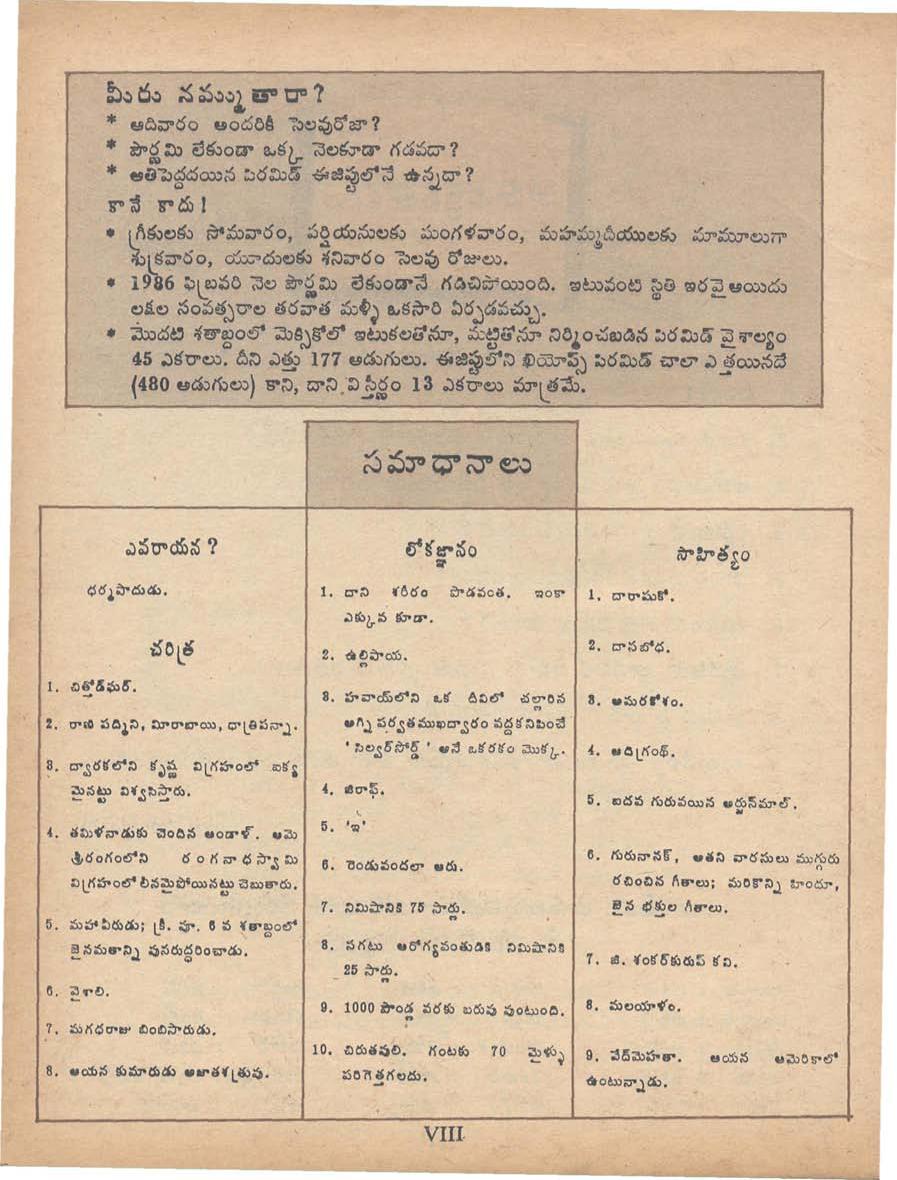 మీరు నమ్ముతారా?
* ఆదివారం అందరికీ సెలవురోజా?
* పౌర్ణమి లేకుండా ఒక్క నెలకూడా గడవదా?
* అతిపెద్దదయిన పిరమిడ్ ఈజిప్టులోనే ఉన్నదా?
కానే కాదు!
* గ్రీకులకు సోమవారం, పర్షియనులకు మంగళవారం, మహమ్మదీయులకు మామూలుగా
శుక్రవారం, యూదులకు శనివారం సెలవు రోజులు.
* 1986 ఫిబ్రవరి నెల పౌర్ణమి లేకుండానే గడిచిపోయింది. ఇటువంటి స్థితి ఇరవై అయిదు
లక్షల సంవత్సరాల తరవాత మళ్ళీ ఒకసారి ఏర్పడవచ్చు.
* మొదటి శతాబ్దంలో మెక్సికోలో ఇటుకలతోనూ, మట్టితోనూ నిర్మించబడిన పిరమిడ్ వైశాల్యం
45 ఎకరాలు. దీని ఎత్తు 177 అడుగులు. ఈజిప్టులోని ఖియోప్స్ పిరమిడ్ చాలా ఎత్తయినదే
(480 అడుగులు) కాని, దాని విస్తీర్ణం 13 ఎకరాలు మాత్రమే.
సమాధానాలు
ఎవరాయన?
ధర్మపాదుడు.
చరిత్ర
1. చిత్తోడ్‌ఘర్.
2. రాణి పద్మిని, మీరాబాయి, ధాత్రిపన్నా.
3. ద్వారకలోని కృష్ణ విగ్రహంలో ఐక్య
మైనట్టు విశ్వసిస్తారు.
4. తమిళనాడుకు చెందిన ఆండాళ్. ఆమె
శ్రీరంగంలోని రంగనాధస్వామి
విగ్రహంలో లీనమైపోయినట్టు చెబుతారు.
5. మహావీరుడు; క్రీ. పూ. 6 వ శతాబ్దంలో
జైనమతాన్ని పునరుద్ధరించాడు.
6. వైశాలి.
7. మగధరాజు బింబిసారుడు.
8. ఆయన కుమారుడు అజాతశత్రువు.
లోకజ్ఞానం
1. దాని శరీరం పొడవంత. ఇంకా
ఎక్కువ కూడా.
2. ఉల్లిపాయ.
3. హవాయ్‌లోని ఒక దీవిలో చల్లారిన
అగ్ని పర్వతముఖద్వారం వద్దకనిపించే
'సిల్వర్‌సోర్డ్' అనే ఒకరకం మొక్క.
4. జిరాఫ్.
5. 'ఇ'
6. రెండువందలా ఆరు.
7. నిమిషానికి 75 సార్లు.
8. సగటు ఆరోగ్యవంతుడికి నిమిషానికి
25 సార్లు.
9. 1000 పౌండ్ల వరకు బరువు వుంటుంది.
10. చిరుతపులి. గంటకు 70 మైళ్ళు
పరిగెత్తగలదు.
సాహిత్యం
1. దారాషుకో.
2. దాసబోధ.
3. అమరకోశం.
4. ఆదిగ్రంథ్.
5. ఐదవ గురువయిన అర్జున్‌మాల్.
6. గురునానక్, అతని వారసులు ముగ్గురు
రచించిన గీతాలు; మరికొన్ని హిందూ,
జైన భక్తుల గీతాలు.
7. జి. శంకర్‌కురుప్ కవి.
8. మలయాళం.
9. వేద్‌మెహతా. ఆయన అమెరికాలో
ఉంటున్నాడు.
VIII